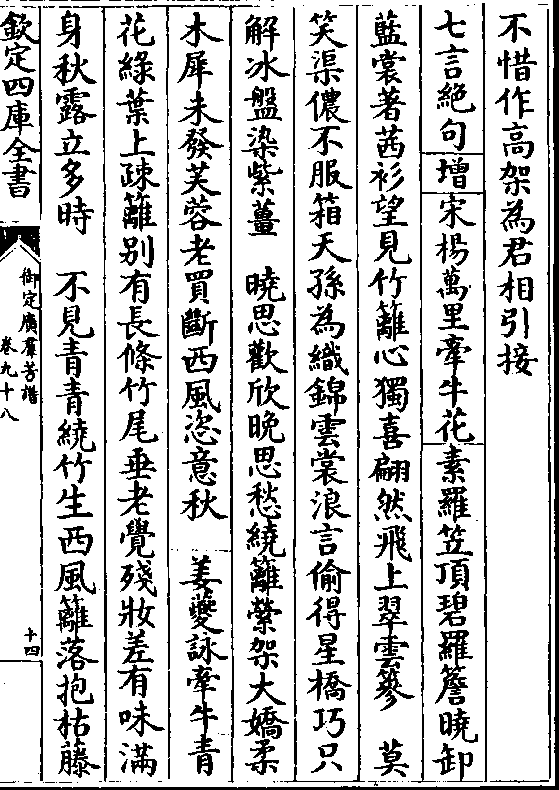 不惜作高架為君相引接
七言絶句增宋楊萬里牽牛花素羅笠頂碧羅簷曉卸
藍裳著茜衫望見竹籬心獨喜翩然飛上翠雲篸　莫
笑渠儂不服箱天孫為織錦雲裳浪言偷得星橋巧只
解冰盤染紫薑　曉思歡欣晚思愁繞籬縈架大嬌柔
木犀未發芙蓉老買斷西風恣意秋　姜夔詠牽牛青
花綠葉上疎籬别有長條竹尾垂老覺殘妝差有味滿
身秋露立多時　不見青青繞竹生西風籬落抱枯藤
欽定四庫全書
御定廣羣芳譜
卷九十八
十四